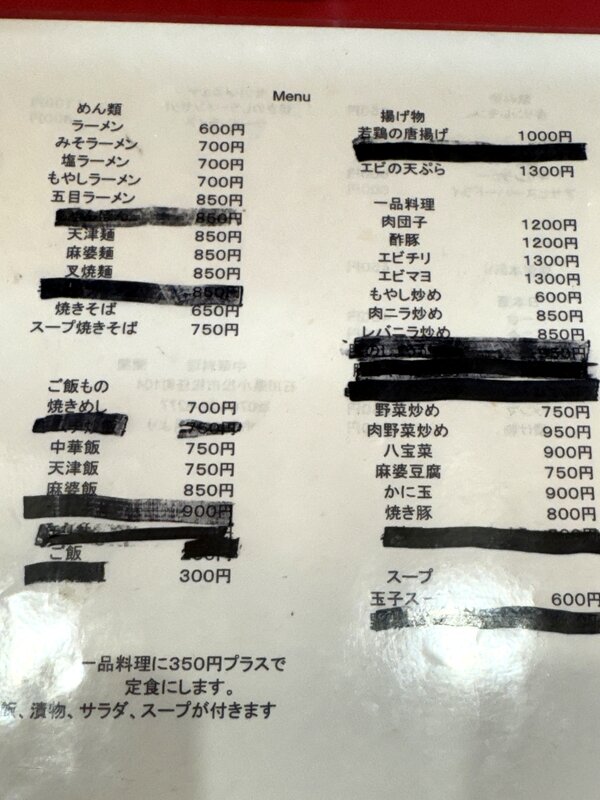 Menu
めん類
ラーメン 600円
みそラーメン 700円
塩ラーメン 700円
もやしラーメン 700円
五目ラーメン 850円
850円
天津麺 850円
麻婆麺 850円
叉焼麺 850円
850円
焼きそば 650円
スープ焼きそば 750円
ご飯もの
焼きめし 700円
750円
中華飯 750円
天津飯 750円
麻婆飯 850円
900円
ご飯
300円
一品料理に350円プラスで
定食にします。
飯、漬物、サラダ、スープが付きます
揚げ物
若鶏の唐揚げ 1000円
エビの天ぷら 1300円
一品料理
肉団子 1200円
酢豚 1200円
エビチリ 1300円
エビマヨ 1300円
もやし炒め 600円
肉ニラ炒め 850円
レバニラ炒め 850円
野菜炒め 750円
肉野菜炒め 950円
八宝菜 900円
麻婆豆腐 750円
かに玉 900円
焼き豚 800円
スープ
玉子スー 600円